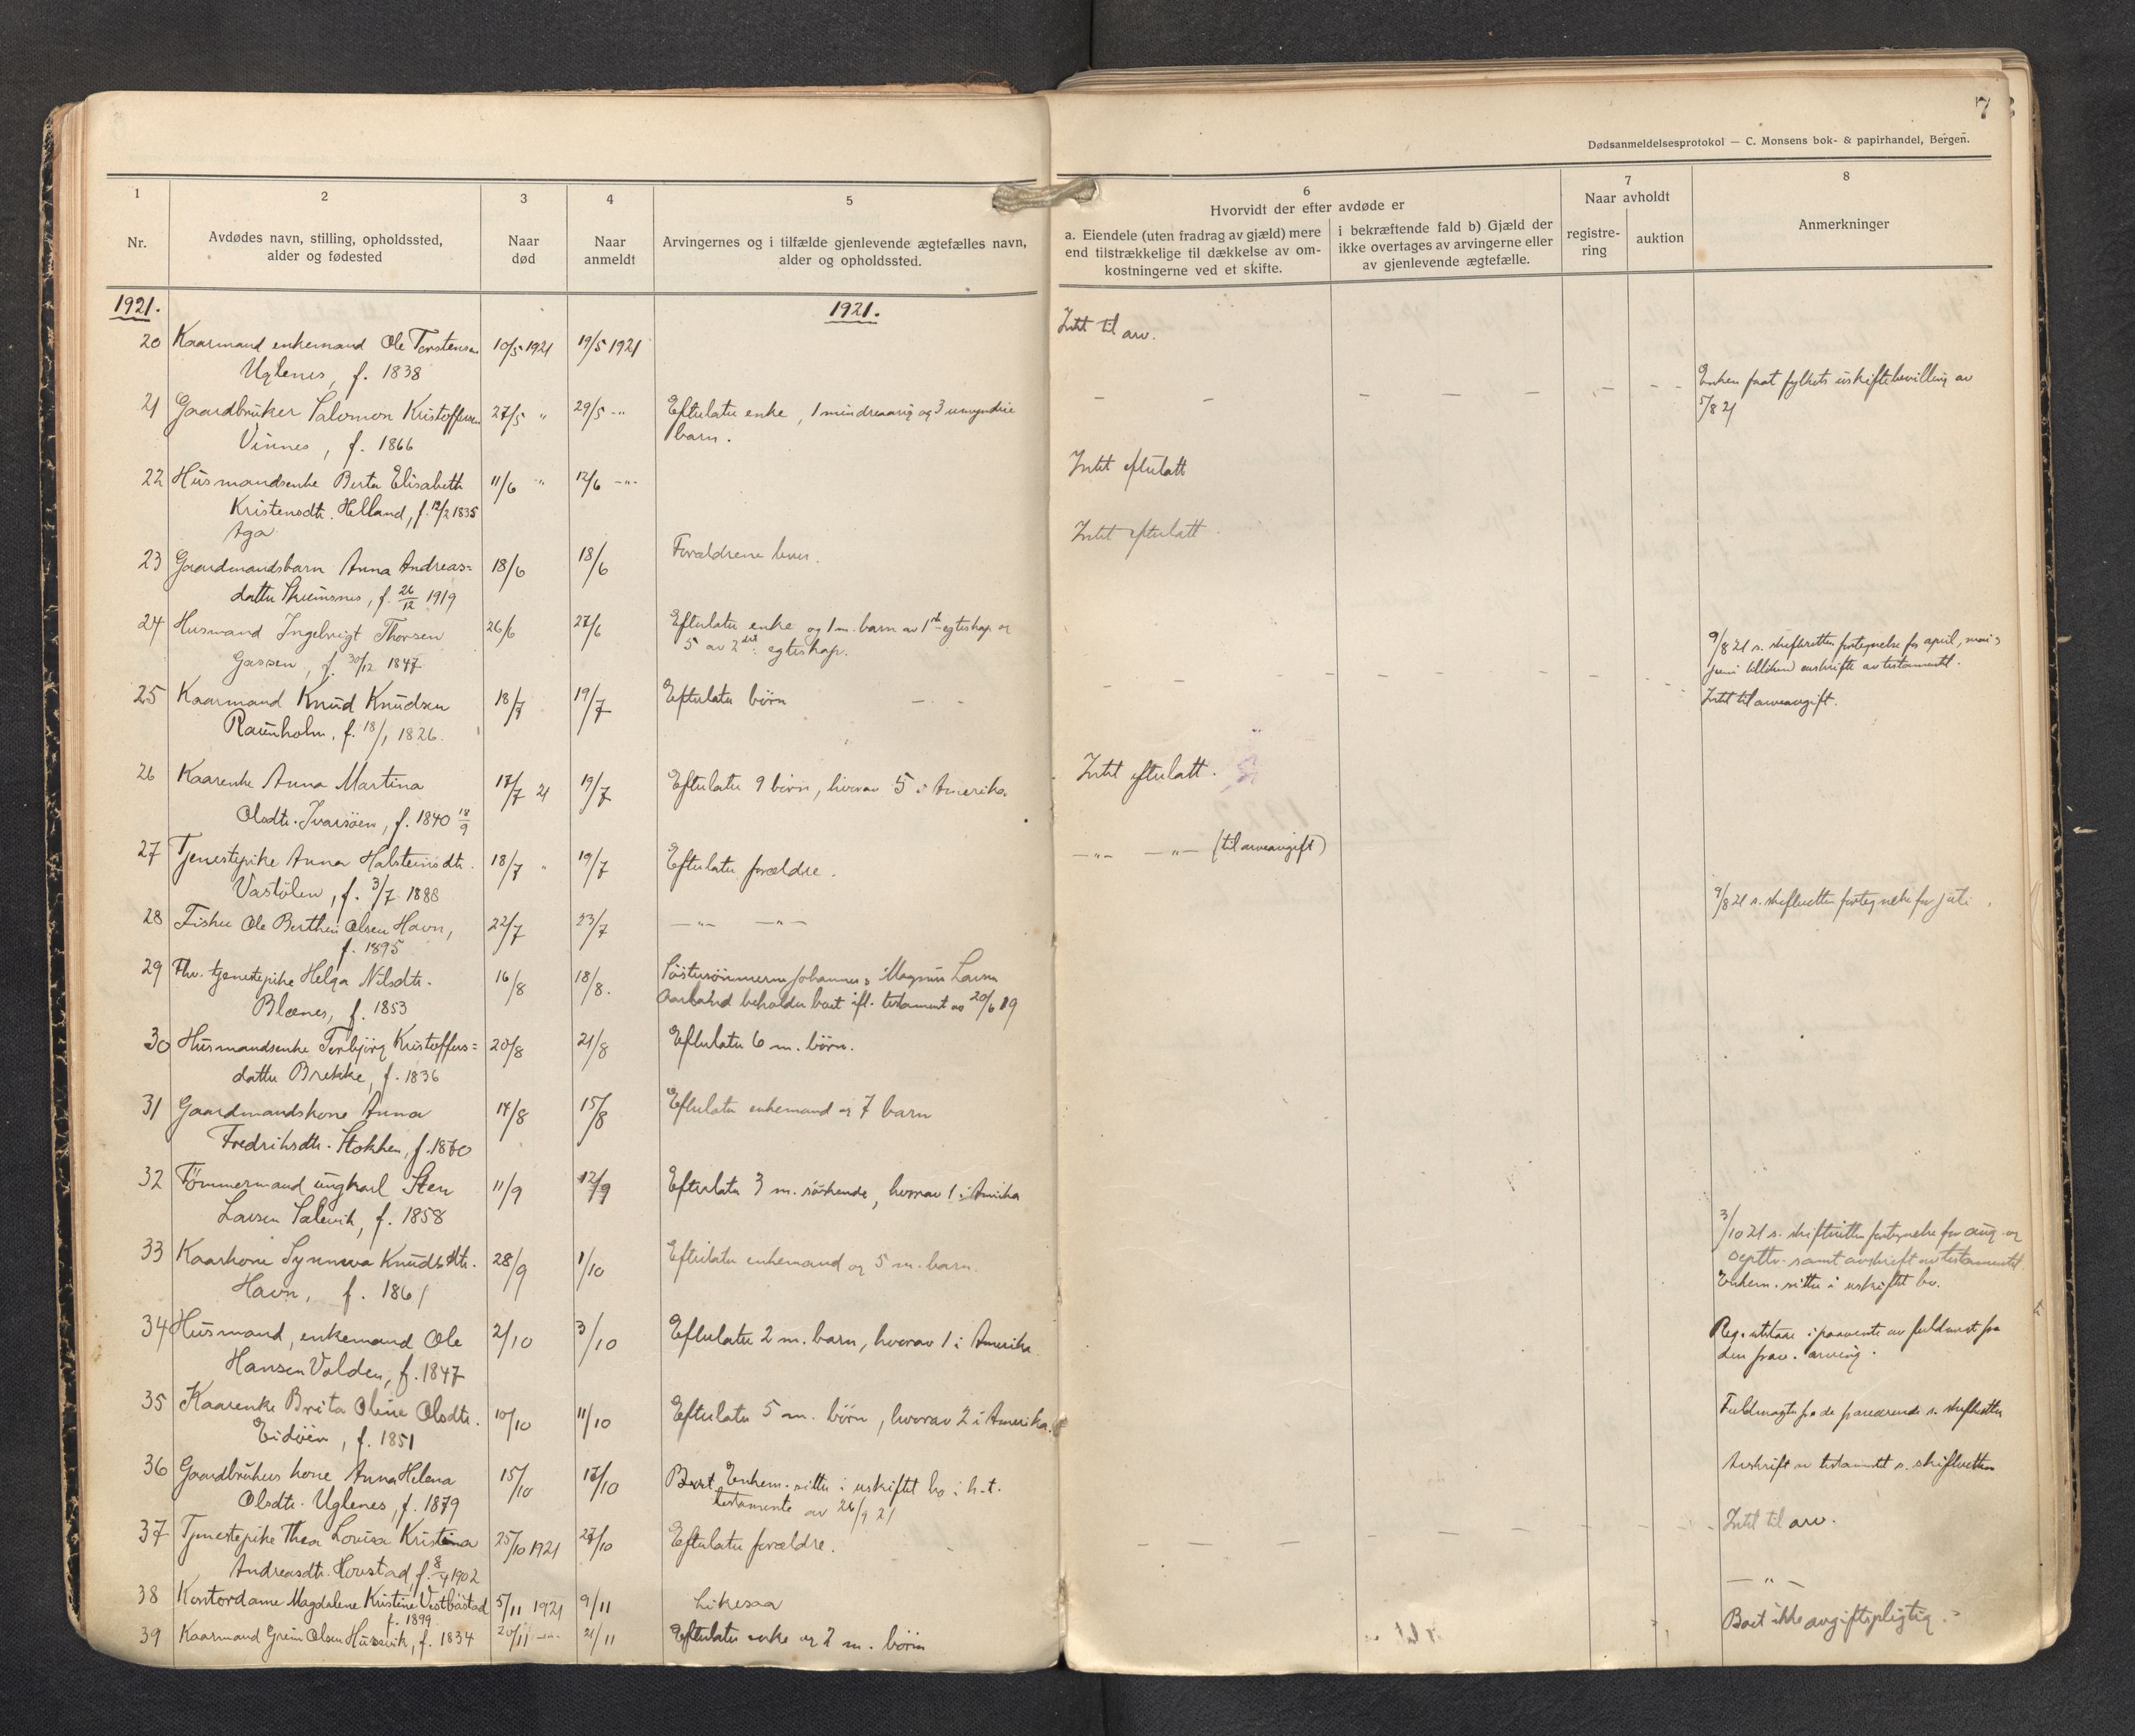 7
Dødsanmeldelsesprotokol — C. Monsens bok- & papirhandel, Bergen.
1
Nr.
2
Avdødes navn, stilling, opholdssted,
alder og fødested
3
Naar
død
4
Naar
anmeldt
5
Arvingernes og i tilfælde gjenlevende ægtefælles navn,
alder og opholdssted.
6
Hvorvidt der efter avdøde er
a. Eiendele (uten fradrag av gjæld) mere
end tilstrækkelige til dækkelse av om-
kostningerne ved et skifte.
i bekræftende fald b) Gjæld der
ikke overtages av arvingerne eller
av gjenlevende ægtefælle.
7
Naar avholdt
registre-
ring
auktion
8
Anmerkninger
1921.
1921.
20 Kaarmand enkemand Ole Torstensen 10/5 1921 19/5 1921 Intet til arv.
Uglenes, f. 1838
21 Gaardbruker Salomon Kristoffersen 27/5 " 29/5 -"- Efterlater enke, 1 mindreaarig og 3 umyndige Enken faat fylkets uskiftebevilling av
Vinnes, f. 1866 barn. 5/8 21
22 Husmandsenke Berta Elisabeth 11/6 -"- 12/6 -"- Intet efterlatt
Kristensdtr. Helland, f. 12/2 1835
Aga
23 Gaardmandsbarn Anna Andreas= 18/6 18/6 Forældrene lever. Intet efterlatt.
datter Skumsnes, f. 26/12 1919
24 Husmand Ingebrigt Thorsen 26/6 27/6 Efterlater enke og 1 m. barn av 1ste egteskap og
Gassen, f. 30/12 1847 5 av 2det egteskap.
9/8 21 s. skifteretten fortegnelse for april, mai og
juni tillikemed avskrifte av testamentet.
25 Kaarmand Knud Knudsen 18/7 19/7 Efterlater börn Intet til arveavgift.
Raunholm, f. 18/1 1826.
26 Kaarenke Anna Martina 17/7 21 19/7 Efterlater 9 börn, hvorav 5 i Amerika. Intet efterlatt.
Olsdtr. Ivarsöen, f. 1840 18/9
27 Tjenestepike Anna Halsteinsdtr. 18/7 " 19/7 Efterlater forældre. —"— —"— (til arveavgift)
Vastölen, f. 3/7 1888
28 Fisker Ole Berthin Olsen Havn, 22/7 23/7 —"— —"— 9/8 21 s. skifteretten fortegnelse for juli.
f. 1895
29 Fhv. tjenestepike Helga Nilsdtr. 16/8 18/8. Söstersönnerne Johannes og Magnus Larsen
Blænes, f. 1853 Aarland beholder boet ifl. testament av 20/6 89
30 Husmandsenke Torbjörg Kristoffers= 20/8 21/8 Efterlater 6 m. börn.
datter Brekke, f. 1836
31 Gaardmandskone Anna 14/8 15/8 Efterlater enkemand og 7 barn
Fredriksdtr. Stokken, f. 1860
32 Tömmermand ungkarl Sten 11/9 12/9 Efterlater 3 m. söskende, hvorav 1 i Amerika
Larsen Salevik, f. 1858
3/10 21 s. skifteretten fortegnelse for aug. og
septbr. samt avskrift av testamentet.
33 Kaarkone Synneva Knudsdtr. 28/9 1/10 Efterlater enkemand og 5 m. barn. Enkem. sitter i uskiftet bo.
Havn, f. 1861
34 Husmand, enkemand Ole 2/10 3/10 Efterlater 2 m. barn, hvorav 1 i Amerika Reg. utstaar i paavente av fuldmagt fra
Hansen Valden, f. 1847 den frav. arving.
35 Kaarenke Brita Oline Olsdtr. 10/10 11/10 Efterlater 5 m. börn, hvorav 2 i Amerika. Fuldmagter fra de fraværende s. skifteretten
Eidöen, f. 1851
36 Gaardbrukers kone Anna Helena 15/10 17/10 Enkem. sitter i uskiftet bo i h.t. Avskrift av testamentet s. skifteretten
Olsdtr. Uglenes, f. 1879 testamente av 26/9 21
37 Tjenestepike Thea Lovisa Kristina 25/10 1921 27/10 Efterlater forældre. Intet til arv.
Andreasdtr. Hovstad, f. 8/4 1902
38 Kontordame Magdalene Kristine Vestböstad 5/11 1921 9/11 Likesaa —"—
f. 1899
39 Kaarmand Greim Olsen Husevik, f. 1834 20/11 -"- 21/11 Efterlater enke og 2 m. börn Boet ikke avgiftspligtig.